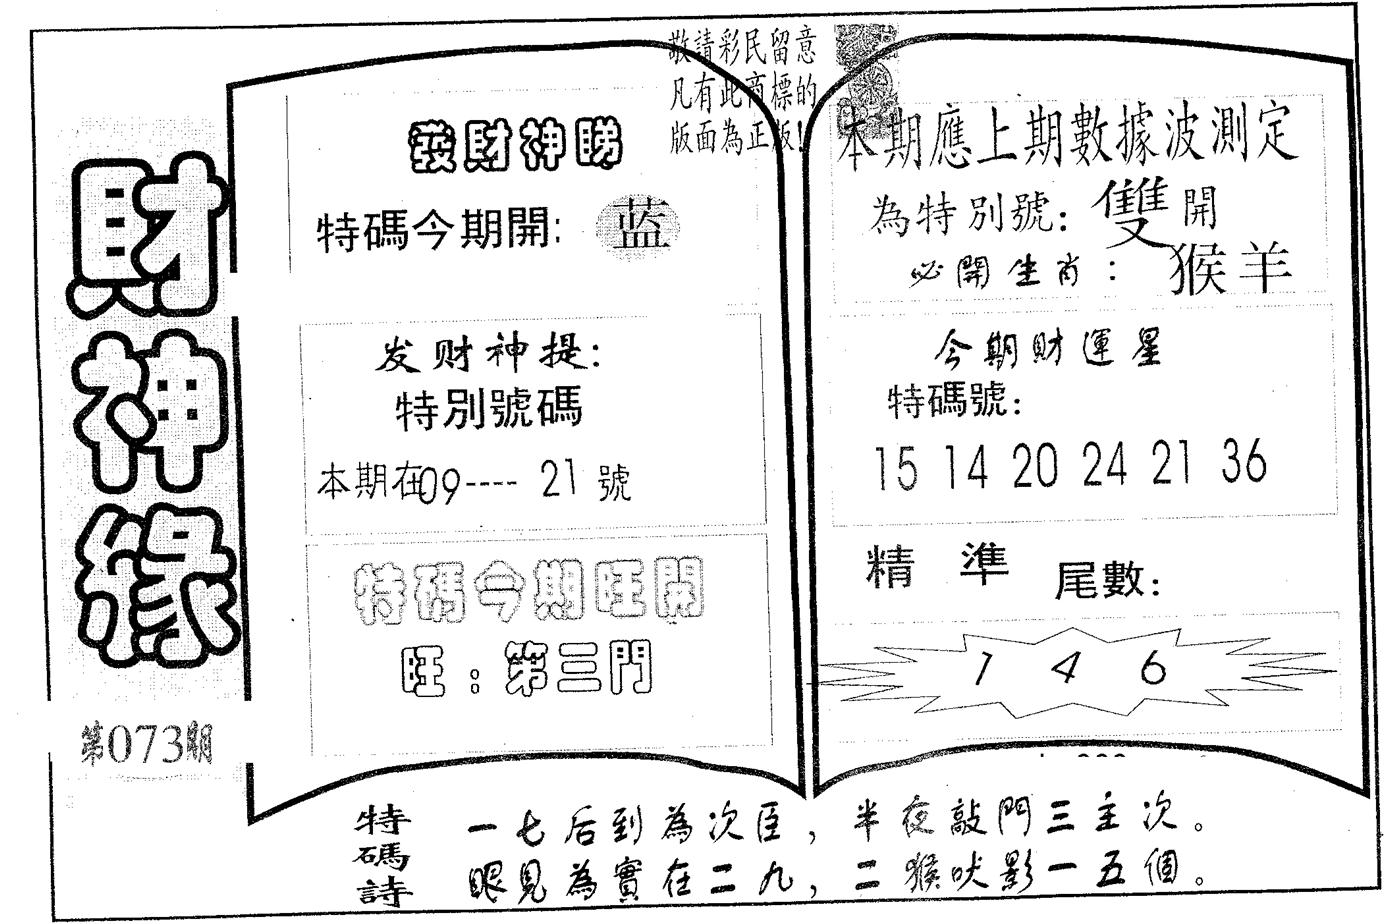 敬請彩民留意
凡有此商標的
版面為正版!
財神緣
第073期
發財神睇
特碼今期開: 蓝
发财神提:
特別號碼
本期在09---- 21 號
特碼今期旺開
旺:第三門
本期應上期數據波測定
為特別號: 雙 開
必開生肖: 猴羊
今期財運星
特碼號:
15 14 20 24 21 36
精 準 尾數:
1 4 6
特碼詩
一七后到為次臣,半夜敲門三主次。
眼見為實在二九,二猴吠影一五個。